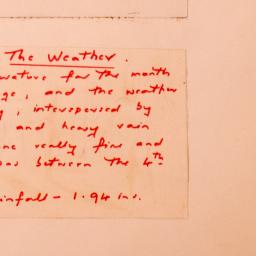 The Weather.
erature for the month
ge, and the weather
g, interspersed by
and heavy rain
one really fine and
as between the 4th
infall - 1.94 ins.